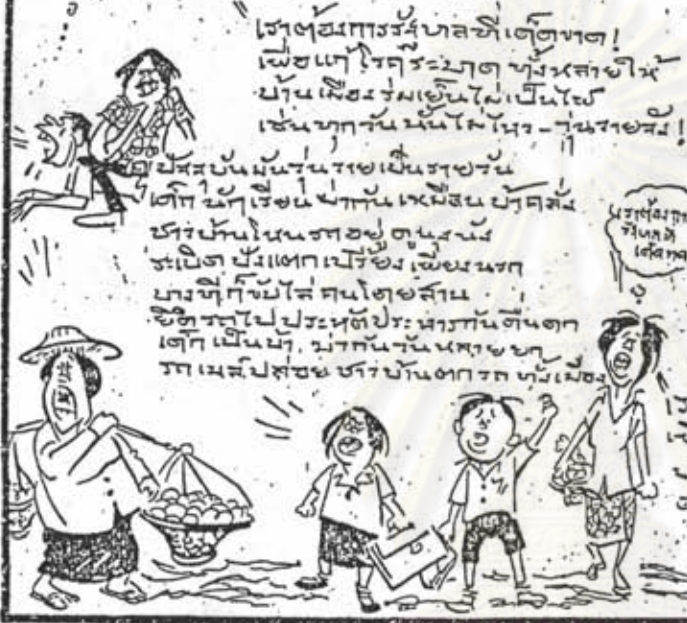 เราต้องการรัฐบาลที่เด็ดขาด!
เพื่อแก้โรคระบาด ทั้งหลายให้
บ้านเมืองร่มเย็นไม่เป็นไฟ
เช่นทุกวันนั้นไม่ไหว - วุ่นวายจัง!
ปัจจุบันมันวุ่นวายเป็นรายวัน
เด็กนักเรียนฆ่ากันเหมือนบ้าคลั่ง
ชาวบ้านโหนรถอยู่ดูนุงนัง
ระเบิดปังแตกเปรี้ยงเพียงนรก
บางทีก็ขับไล่คนโดยสาร
ยึดรถไปประหัตประหารกันดื่นดก
เด็กเป็นบ้า, ฆ่ากันวันหลายยก
รถเมล์ปล่อยชาวบ้านตกรถทั้งเมือง
เราต้องการ
รัฐบาลที่
เด็ดขาด